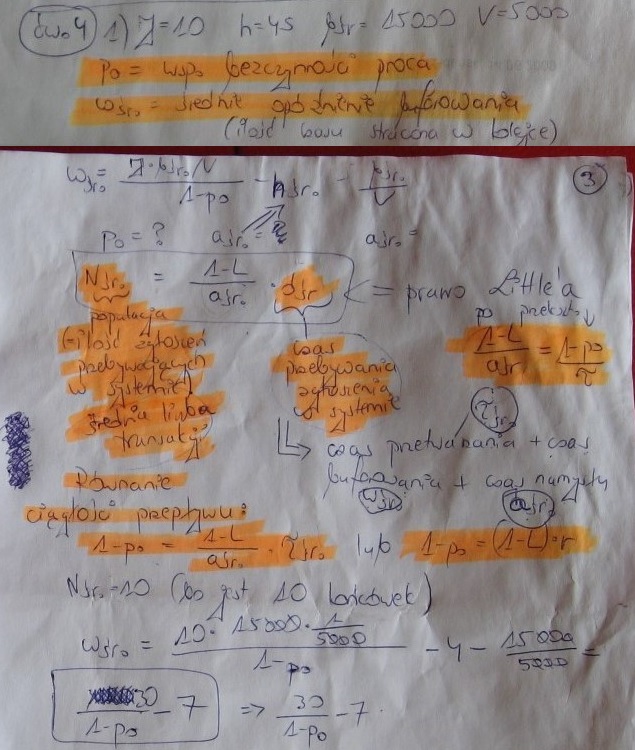 ćw. 4 1) J=10 h=4s βśr= 15000 V=5000
p0 = wsp. bezczynności proca
wśr. = średnie opóźnienie buforowania
(ilość czasu stracona w kolejce)
wśr. = J·βśr./V / 1-p0 - hśr. - βśr. / V
3
p0 = ? aśr. = aśr. =
Nśr. = 1-L / aśr. · dśr <= prawo Little'a
populacja
(=ilość zgłoszeń
przebywających
w systemie)
średnia liczba
transakcji
czas
przebywania
zgłoszenia
w systemie
po przekszt.
1-L / aśr = 1-p0 / τ
τśr.
czas przetwarzania + czas
buforowania + czas namysłu
wśr. aśr.
Równanie
ciągłości przepływu:
1-p0 = 1-L / aśr. · τśr. lub 1-p0 = (1-L)·r
Nśr.=10 (bo jest 10 końcówek)
wśr. = 10· 15000· 1/5000 / 1-p0 - 4 - 15000 / 5000 =
30 / 1-p0 - 7 => 30 / 1-p0 - 7.